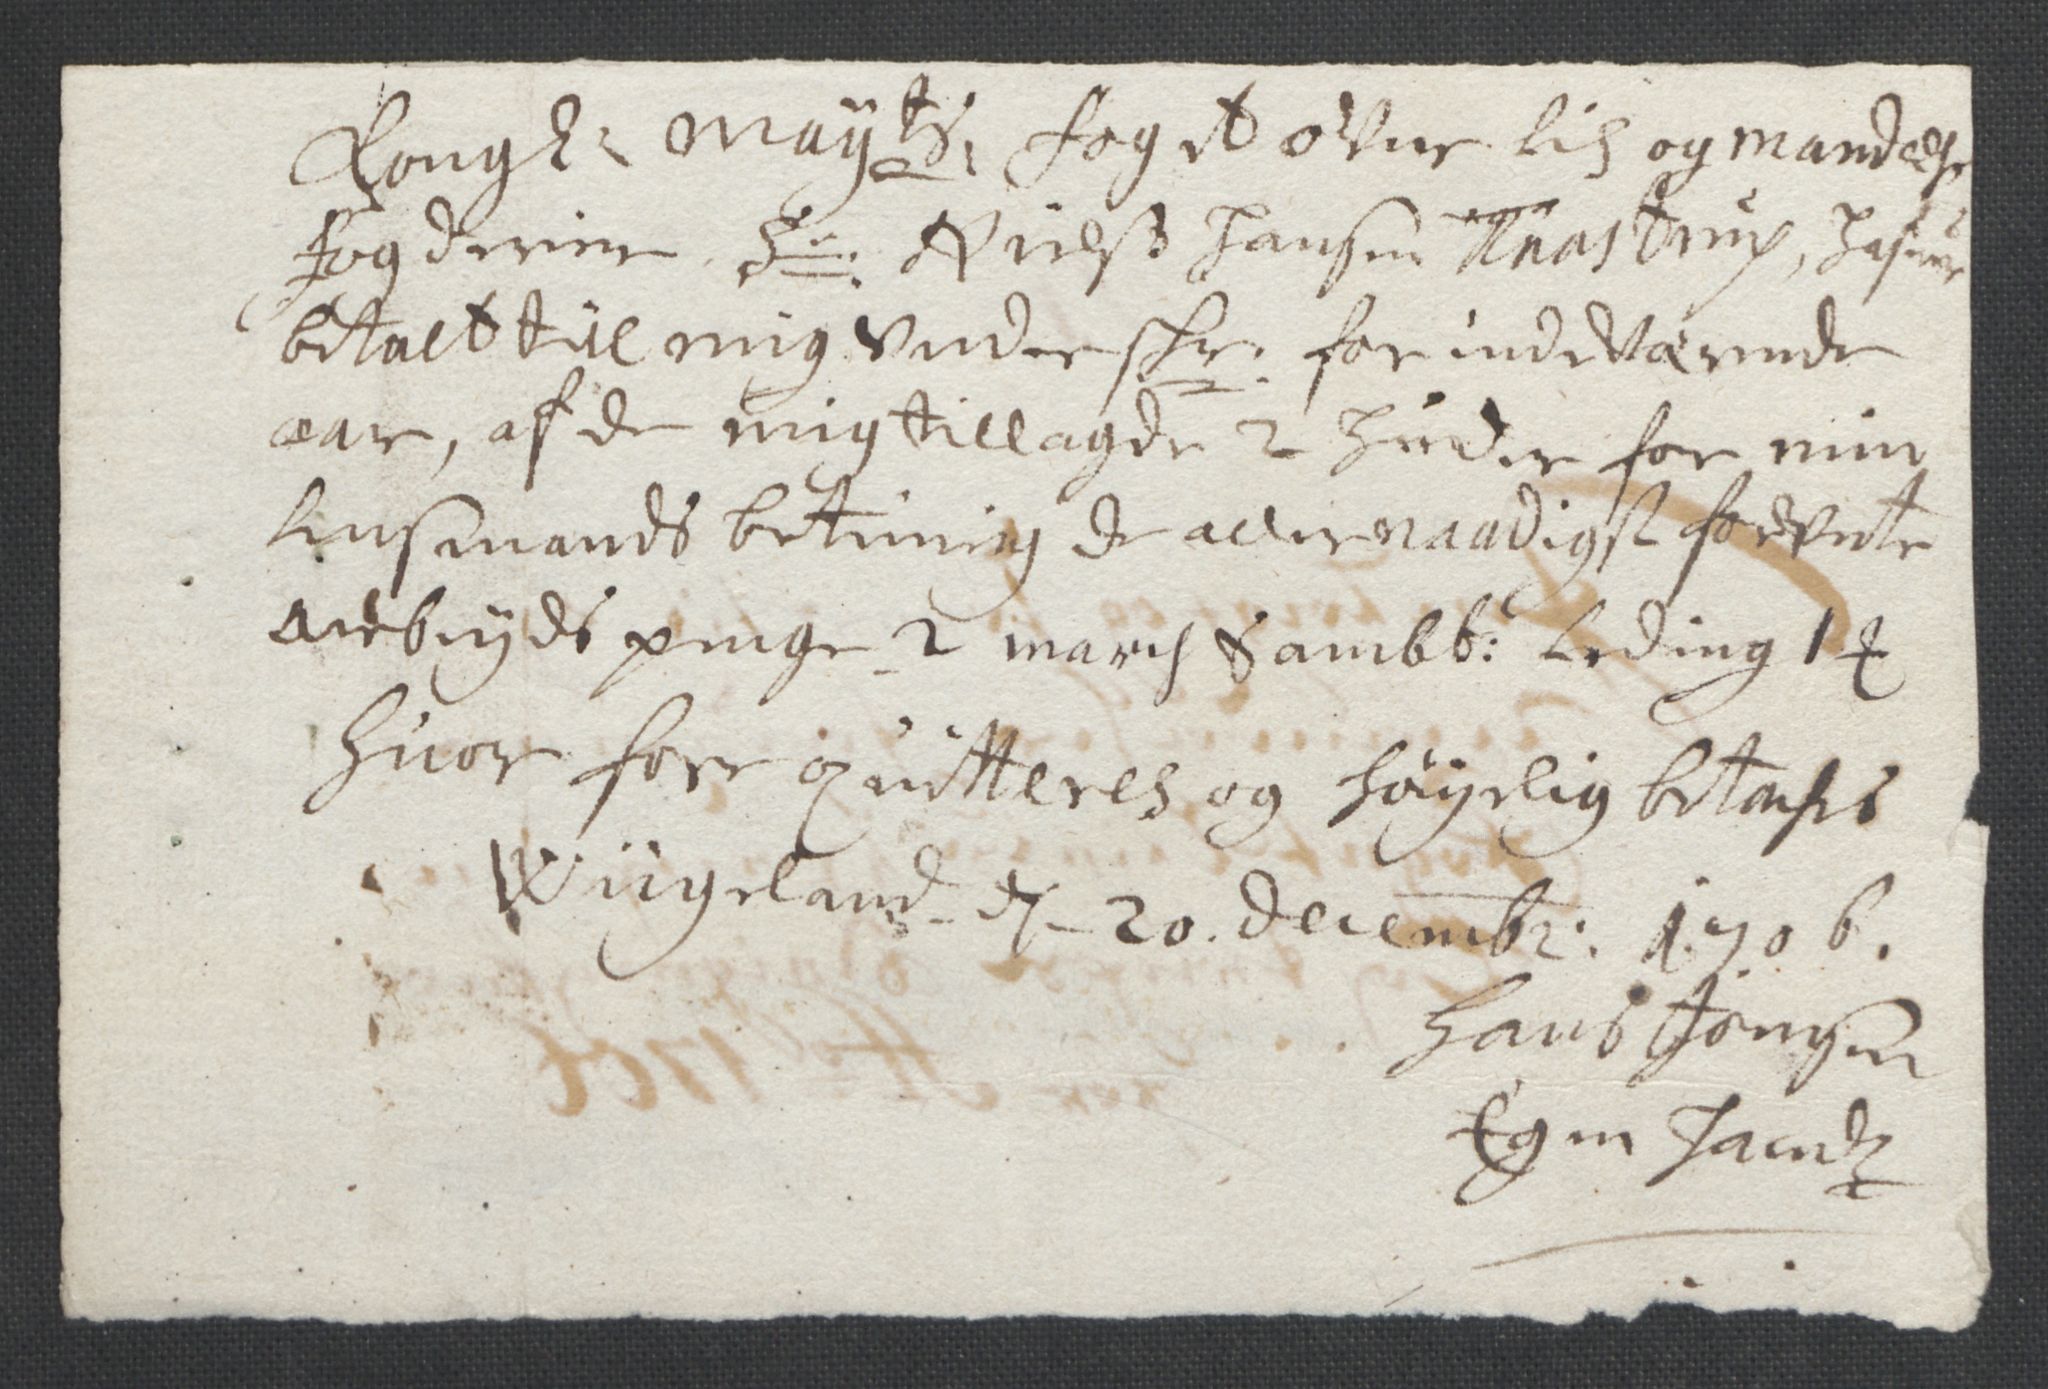 Kongl: Mayts: foget ofuer Lis og mandals
fogderier Hr: Niels Hansen Knastrup, hafuer
betalt till mig vnderskr: for indeværende
aar, af de mig tillagde 2 huder for min
Lensmands bestining de allernaadigst forvnte
arbeyds penge 2 march Sambt: Leding 1
huor fore quitteres og høyelig betackes
Wiigeland d 20. decembr: 1706.
Hans Tønnesen
Egen Haand